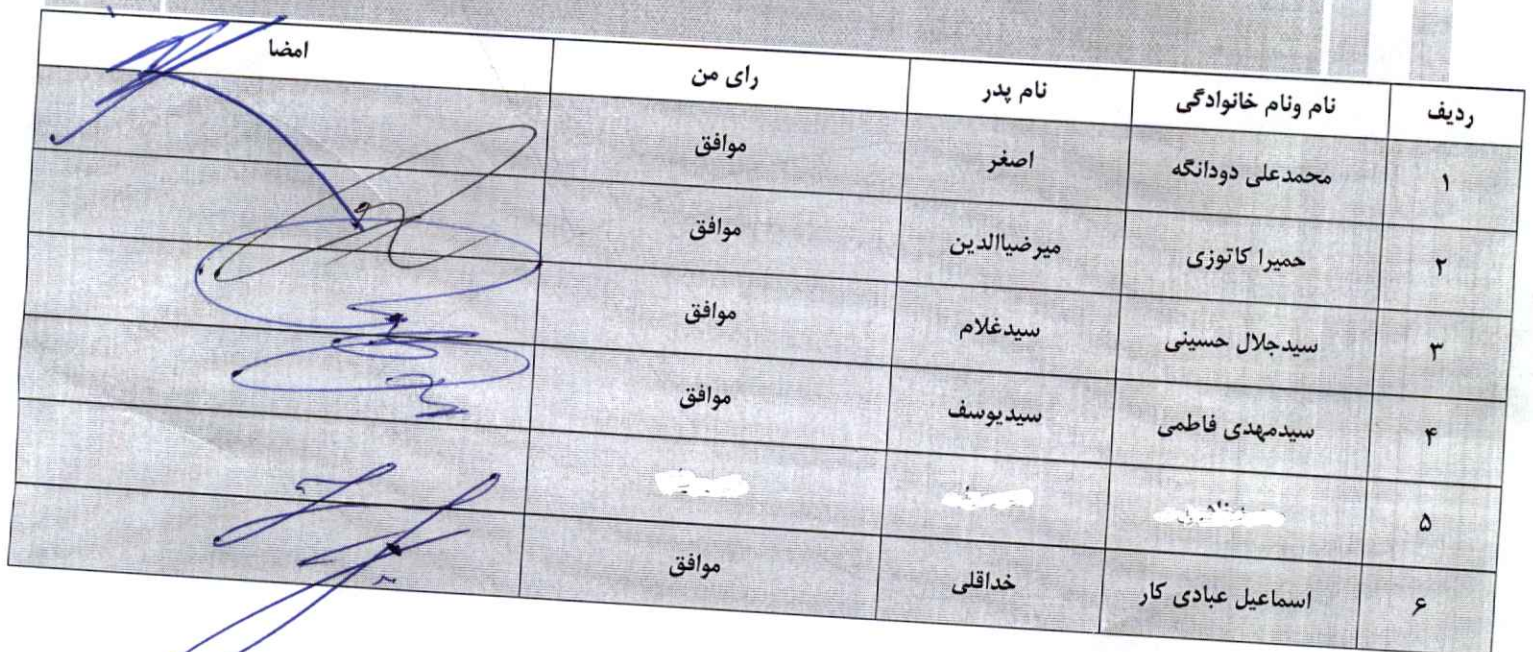 ردیف نام ونام خانوادگی نام پدر رای من امضا
۱ محمدعلی دودانگه اصغر موافق
۲ حمیرا کاتوزی میرضیاالدین موافق
۳ سیدجلال حسینی سیدغلام موافق
۴ سیدمهدی فاطمی سیدیوسف موافق
۵
۶ اسماعیل عبادی کار خداقلی موافق